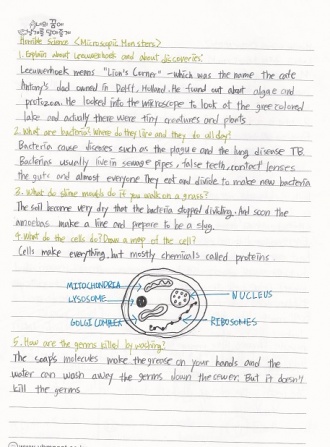 Horrible Science <Microscopic Monsters>
1. Explain about Leeuwenhoek and about discoveries.
Leeuwenhoek means "Lion's Corner" - which was the name the cafe
Antony's dad owned in Delft, Holland. He found out about algae and
protozoa. He looked into the microscope to look at the green colored
lake and actually there were tiny creatures and plants
2. What are bacteria? Where do they live and they do all day?
Bacteria cause diseases such as the plague and the lung disease TB.
Bacterias usually live in sewage pipes, false teeth, contact lenses
the guts and almost everyone They eat and divide to make new bacteria
3. What do slime moulds do if you walk on a grass?
The soil become very dry that the bacteria stopped dividing. And soon the
amoebas make a line and prepare to be a slug.
4. What do the cells do? Draw a map of the cell?
Cells make everything, but mostly chemicals called proteins
MITOCHONDRIA
LYSOSOME
NUCLEUS
GOLGI COMBER
RIBOSOMES
5. How are the germs killed by washing?
The soap's molecules make the grease on your hands and the
water can wash away the germs down the sewer. But it doesn't
kill the germs